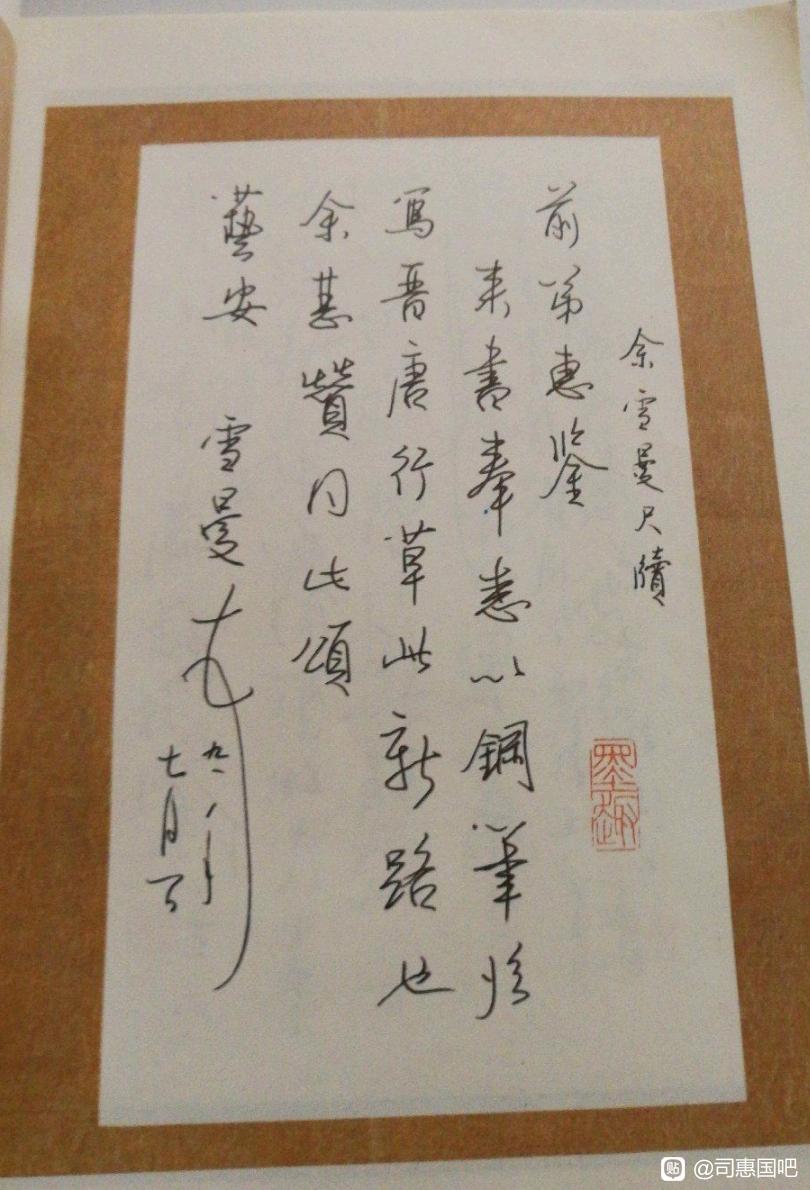 余雪曼尺牘
前弟惠鉴
来書奉悉以鋼筆臨
寫晋唐行草此新路也
余甚贊同此頌
藝安
雪曼
九一年
七月
墨趣
@司惠国吧